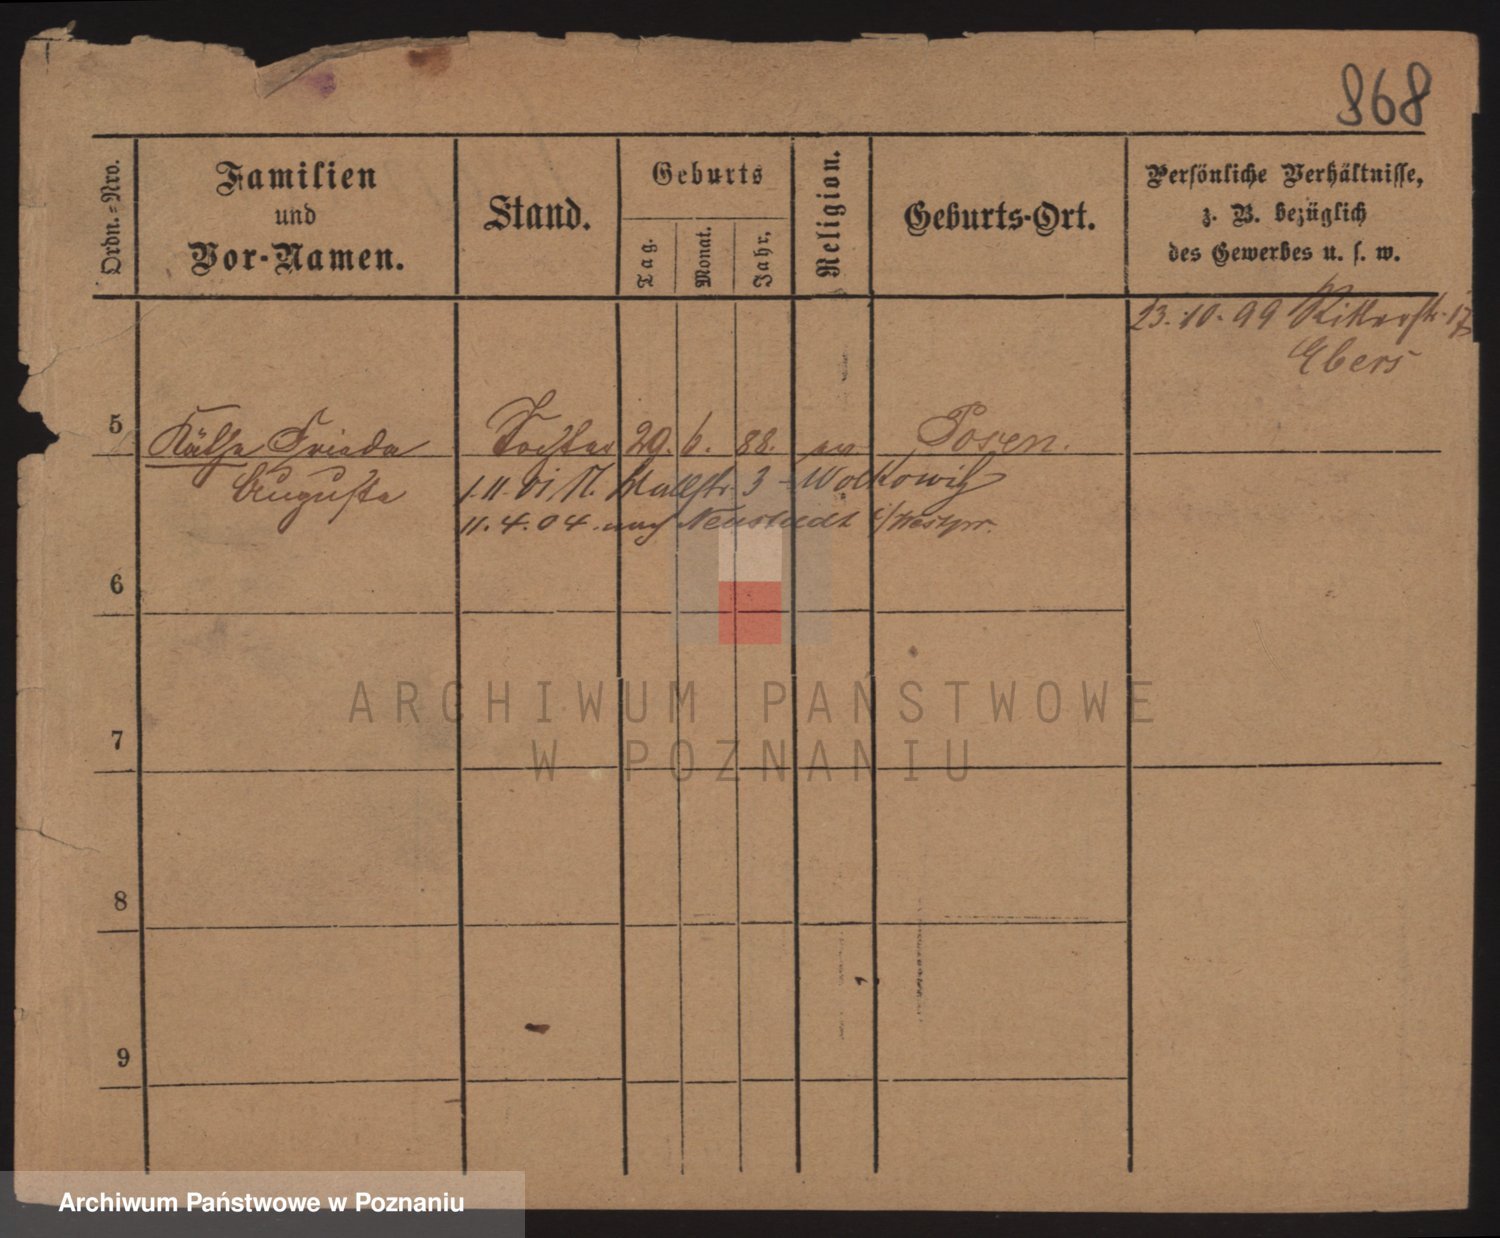 868
Ordn.-Nro.
Familien
und
Vor-Namen.
Stand.
Geburts
Tag.
Monat.
Jahr.
Religion.
Geburts-Ort.
Persönliche Verhältnisse,
z. B. bezüglich
des Gewerbes u. s. w.
23. 10. 99 Ritterstr. 17
Ebers
5 Käthe Frieda Tochter 29. 6. 88. ev. Posen.
Augusta 1.11. 01 Wallstr. 3 - Wolkowitz
11. 4. 04. nach Neustadt i/Westpr.
6
7
8
9
ARCHIWUM PAŃSTWOWE
W POZNANIU
Archiwum Państwowe w Poznaniu